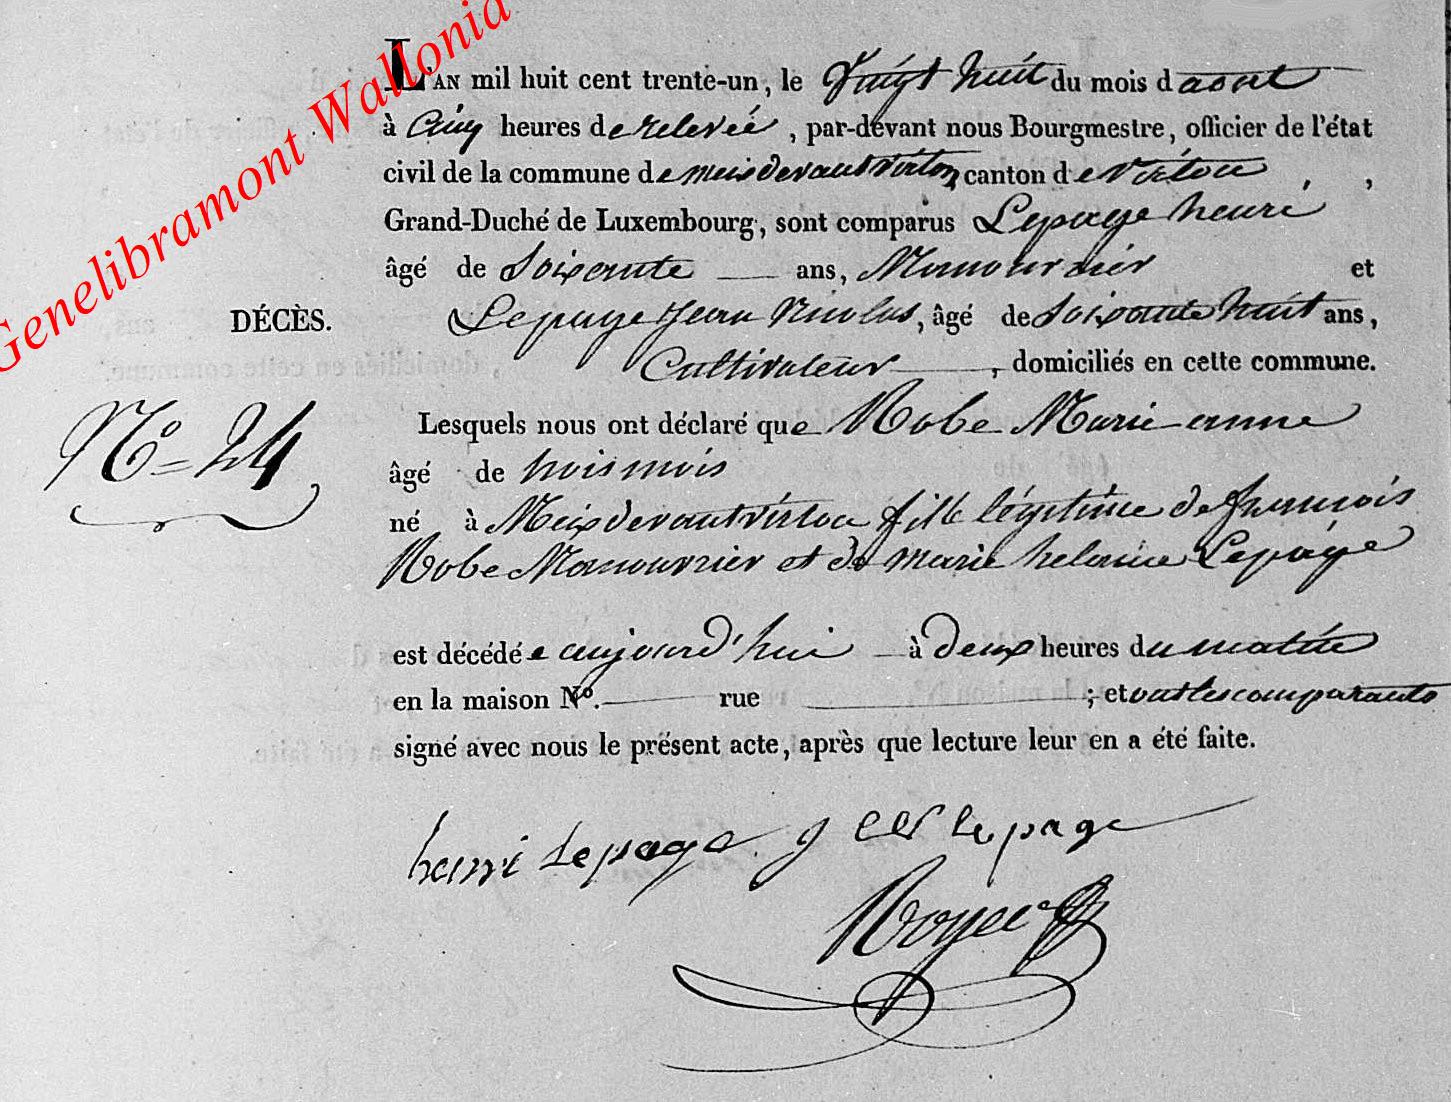 Genelibramont Wallonia
L'AN mil huit cent trente-un, le Vingt huit du mois d'aout
à Cinq heures de relevée, par-devant nous Bourgmestre, officier de l'état
civil de la commune de meix devant virton canton de virton , ,
Grand-Duché de Luxembourg, sont comparus Lepage henri
âgé de Soixante ans, Manouvrier et
DÉCÈS.
Lepage Jean Nicolas, âgé de Soixante huit ans,
Cultivateur, domiciliés en cette commune.
No = 24
Lesquels nous ont déclaré que Robe Marie-anne
âgé de trois mois
né à Meix devant virton fille légitime de francois
Robe Manouvrier et de marie helaine Lepage
est décédée aujourd'hui à deux heures du matin
en la maison No. rue ; et ont les comparants
signé avec nous le présent acte, après que lecture leur en a été faite.
henri Lepage J Lepage